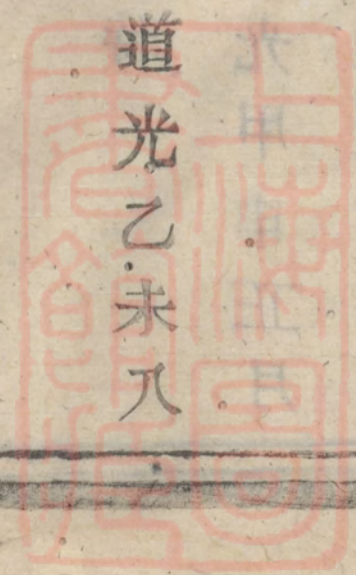 道光乙未八
上海圖
書館藏